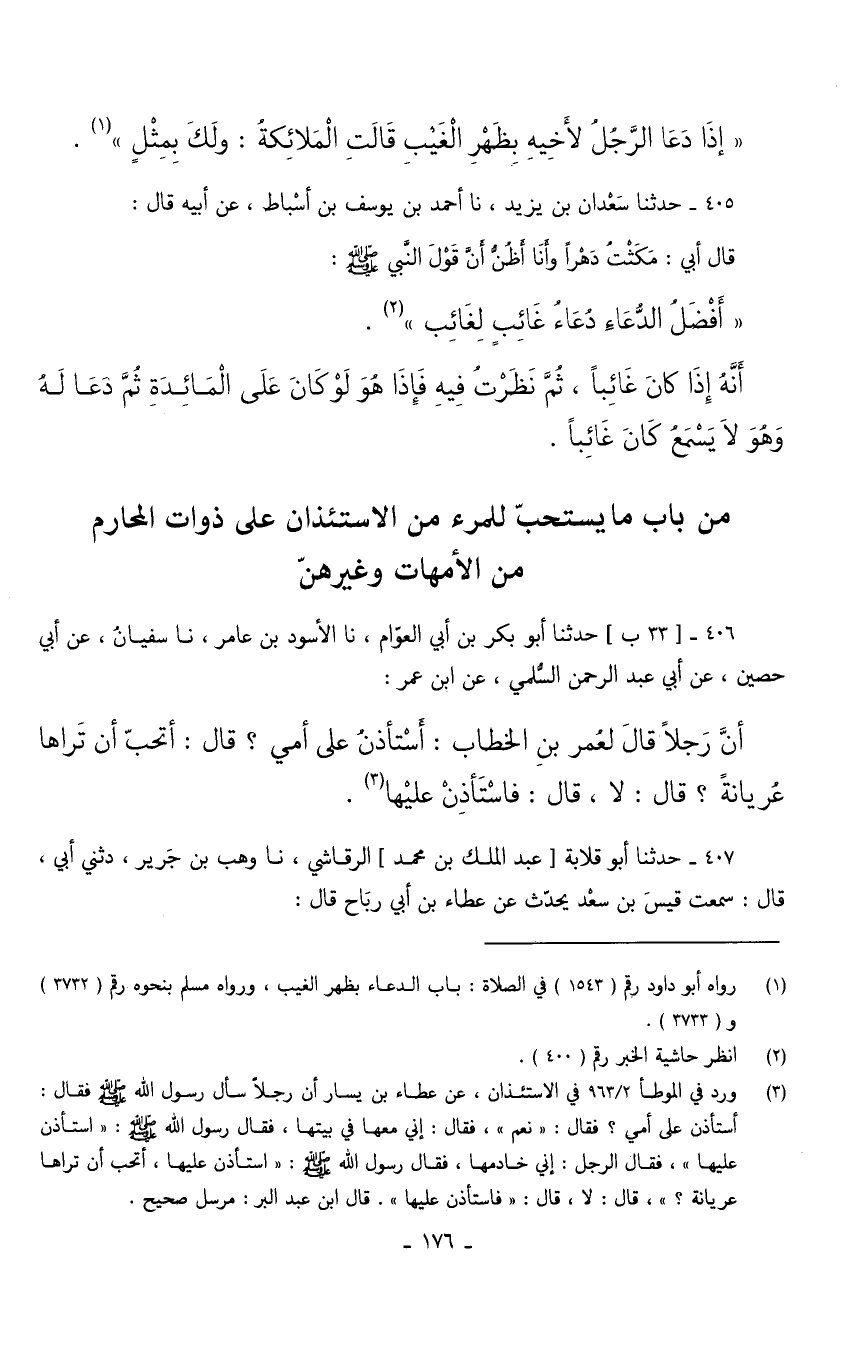 « إذَا دَعَا الرَّجُلُ لأَخِيهِ بِظَهْرِ الْغَيْبِ قَالَتِ الْمَلائِكةُ : ولَكَ بِمِثْلٍ »(١) .
٤٠٥ ـ حدثنا سَعْدان بن يزيد ، نا أحمد بن يوسف بن أسْباط ، عن أبيه قال :
قال أبي : مَكَثْتُ دَهْراً وأَنَا أَظُنُّ أَنَّ قَوْلَ النَّبي ﷺ :
« أَفْضَلُ الدُّعَاءِ دُعَاءُ غَائِبٍ لِغَائِب »(٢) .
أَنَّهُ إِذَا كانَ غَائِباً ، ثُمَّ نَظَرْتُ فِيهِ فَإِذَا هُوَ لَوْ كَانَ عَلَى الْمَائِدَةِ ثُمَّ دَعَا لَهُ
وَهُوَ لاَ يَسْمَعُ كَانَ غَائِباً .
من باب ما يستحبّ للمرء من الاستئذان على ذوات المحارم
من الأمهات وغيرهنّ
٤٠٦ ـ [ ٣٣ ب ] حدثنا أبو بكر بن أبي العوّام ، نا الأسود بن عامر ، نا سفيانُ ، عن أبي
حصين ، عن أبي عبد الرحمن السُّلمي ، عن ابن عمر :
أنَّ رَجلاً قالَ لعُمر بنِ الخطاب : أَسْتأذنُ على أمي ؟ قال : أتحبّ أن تَراها
عُريانةً ؟ قال : لا ، قال : فاسْتَأذِنْ عليْها(٣) .
٤٠٧ ـ حدثنا أبو قلابة [ عبد الملك بن محمد ] الرقاشي ، نا وهب بن جَرير ، دثني أبي ،
قال : سمعت قيسَ بن سعْد يحدّث عن عطاء بن أبي ربَاح قال :
(١) رواه أبو داود رقم ( ١٥٤٣ ) في الصلاة : باب الدعاء بظهر الغيب ، ورواه مسلم بنحوه رقم ( ٣٧٣٢ )
و ( ٣٧٣٣ ) .
(٢) انظر حاشية الخبر رقم ( ٤٠٠ ) .
(٣) ورد في الموطأ ٩٦٣/٢ في الاستئذان ، عن عطاء بن يسار أن رجلاً سأل رسول الله ﷺ فقال :
أستأذن على أمي ؟ فقال : « نعم » ، فقال : إني معها في بيتها ، فقال رسول الله ﷺ : « استأذن
عليها » ، فقال الرجل : إني خادمها ، فقال رسول الله ﷺ : « استأذن عليها ، أتحب أن تراها
عريانة ؟ » ، قال : لا ، قال : « فاستأذن عليها » . قال ابن عبد البر : مرسل صحيح .
ـ ١٧٦ ـ